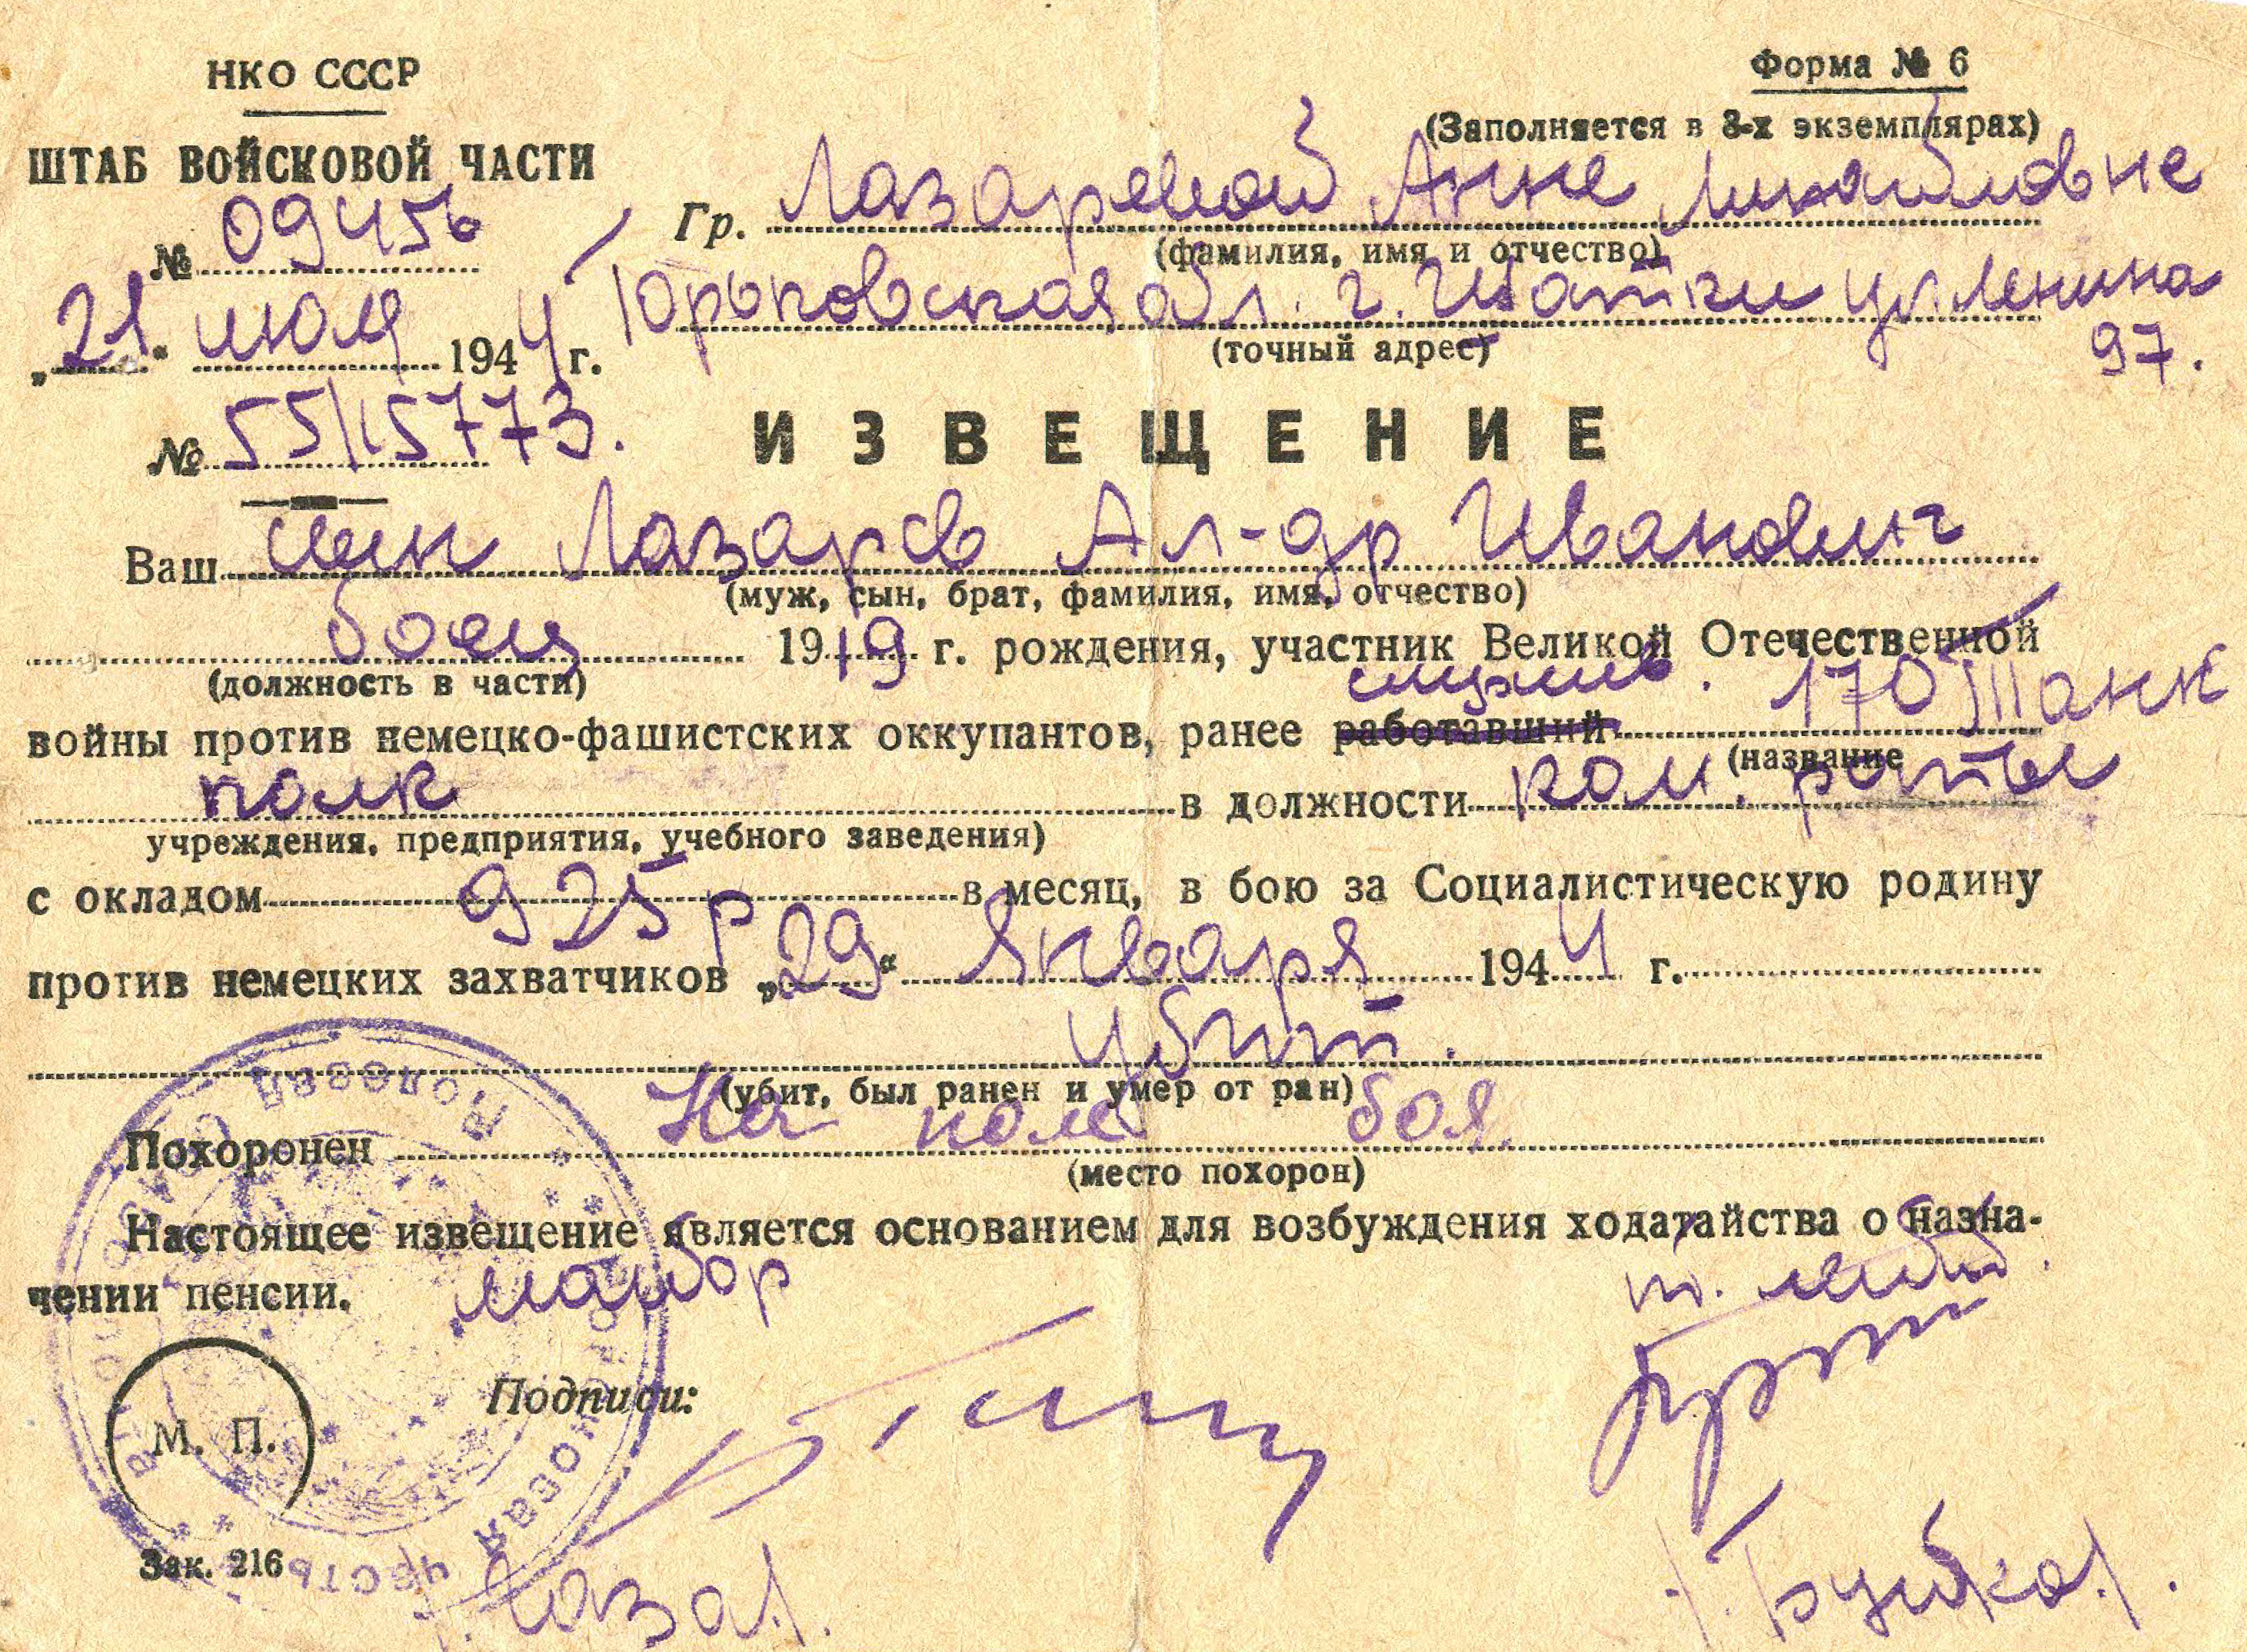 НКО СССР
Форма № 6
(Заполняется в 3-х экземплярах)
ШТАБ ВОЙСКОВОЙ ЧАСТИ
№ 09456
Гр. Лазаревой Анне Михайловне
(фамилия, имя и отчество)
„21“ июля 1944 г.
Юрьковская обл. г. Шатки ул Ленина
97.
(точный адрес)
№ 55/15773.
ИЗВЕЩЕНИЕ
Ваш сын Лазарев Ал-др Иванович
(муж, сын, брат, фамилия, имя, отчество)
боец 1919 г. рождения, участник Великой Отечественной
(должность в части)
служив. 170 Танк
войны против немецко-фашистских оккупантов, ранее работавший
(название
полк в должности ком. роты
учреждения, предприятия, учебного заведения)
с окладом 925 р в месяц, в бою за Социалистическую родину
против немецких захватчиков „29“ Января 1944 г.
убит.
(убит, был ранен и умер от ран)
Похоронен На поле боя.
(место похорон)
Настоящее извещение является основанием для возбуждения ходатайства о назна-
чении пенсии.
майор
Подписи:
М. П.
Полевая
часть
Зак. 216